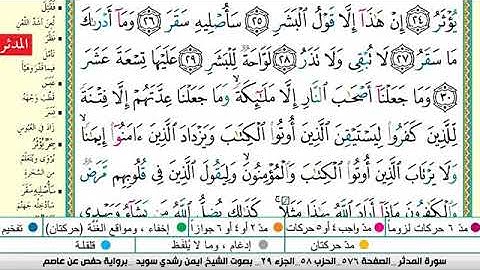 يُؤْثَرُ ٢٤ إِنْ هَٰذَآ إِلَّا قَوْلُ ٱلْبَشَرِ ٢٥ سَأُصْلِيهِ سَقَرَ ٢٦ وَمَآ أَدْرَىٰكَ
مَا سَقَرُ ٢٧ لَا تُبْقِى وَلَا تَذَرُ ٢٨ لَوَّاحَةٌ لِّلْبَشَرِ ٢٩ عَلَيْهَا تِسْعَةَ عَشَرَ
٣٠ وَمَا جَعَلْنَآ أَصْحَٰبَ ٱلنَّارِ إِلَّا مَلَٰٓئِكَةً ۙ وَمَا جَعَلْنَا عِدَّتَهُمْ إِلَّا فِتْنَةً
لِّلَّذِينَ كَفَرُوا۟ لِيَسْتَيْقِنَ ٱلَّذِينَ أُوتُوا۟ ٱلْكِتَٰبَ وَيَزْدَادَ ٱلَّذِينَ ءَامَنُوٓا۟ إِيمَٰنًا ۙ
وَلَا يَرْتَابَ ٱلَّذِينَ أُوتُوا۟ ٱلْكِتَٰبَ وَٱلْمُؤْمِنُونَ ۙ وَلِيَقُولَ ٱلَّذِينَ فِى قُلُوبِهِم مَّرَضٌ
وَٱلْكَٰفِرُونَ مَاذَآ أَرَادَ ٱللَّهُ بِهَٰذَا مَثَلًا ۚ كَذَٰلِكَ يُضِلُّ ٱللَّهُ مَن يَشَآءُ وَيَهْدِى
المدثر
مدّ ٦ حركات لزوماً مدّ واجب ٤ أو ٥ حركات مدّ ٢ أو ٤ أو ٦ جوازاً إخفاء ، ومواقع الغُنَّة (حركتان) تفخيم
مدّ حركتان إدغام ، وما لا يُلفَظ قلقلة
سورة المدثر - الصفحة ٥٧٦ - الحزب ٥٨ - الجزء ٢٩ - بصوت الشيخ ايمن رشدي سويد - برواية حفص عن عاصم